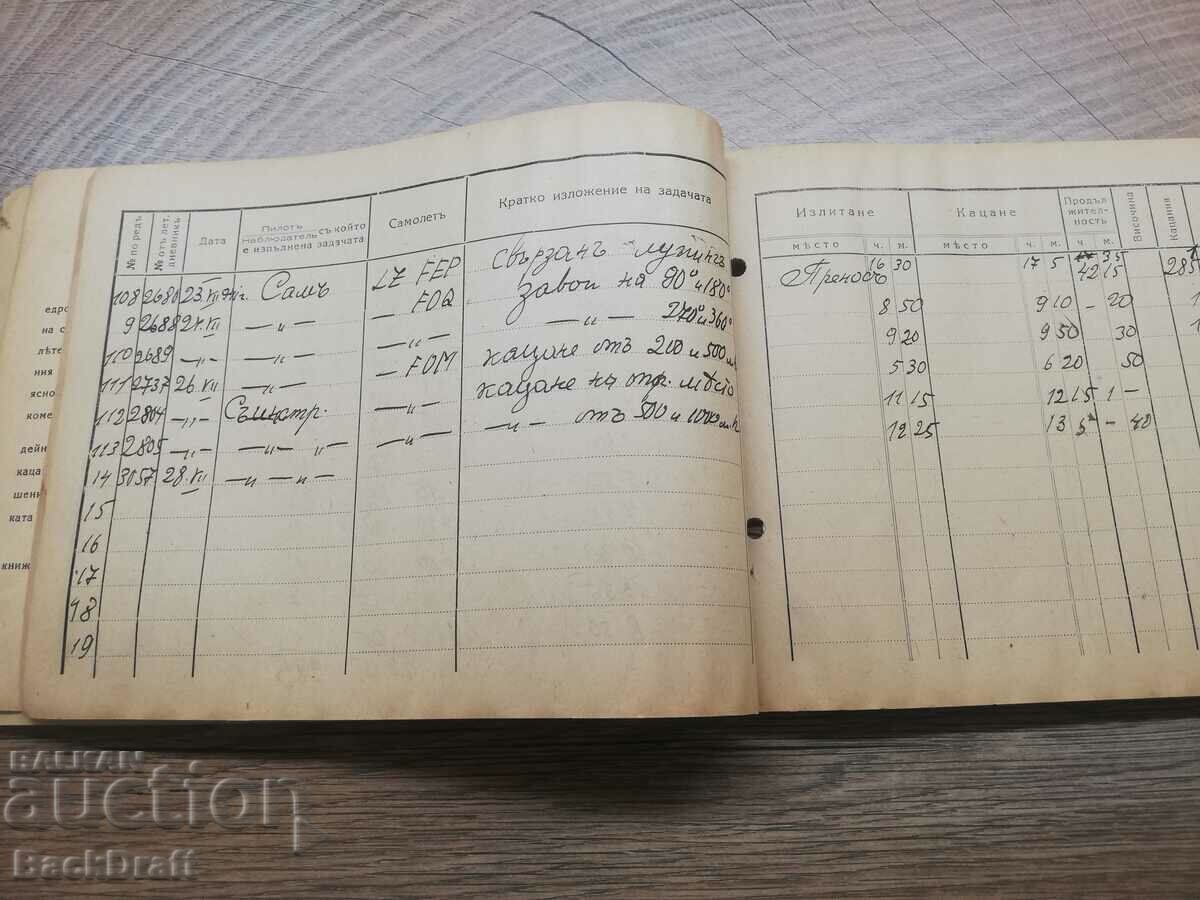 едро
на с
лѣте
ния
ясно
коме
дейн
каца
шенн
ката
книж
№ по редъ
№ отъ лет. дневникъ
Дата
Пилотъ
Наблюдатель
съ който
е изпълнена задачата
Самолетъ
Кратко изложение на задачата
108 2680 23. VII Самъ LZ FEP свързанъ лупингъ
9 2688 24. VII —„— — FOQ завои на 90° и 180°
110 2689 —„— —„— —„— —„— 270° и 360°
111 2737 26. VII —„— — FOM кацане отъ 200 и 500 м
112 2804 —„— —„— кацане на опр. мѣсто
113 2805 —„— —„— „ —„— —„— отъ 500 и 1000 м.
14 3057 28. VII —„— —„—
15
16
17
18
19
Излитане
Кацане
Продъл
жител-
ность
Височина
Кацания
мѣсто ч. м. мѣсто ч. м. ч. м.
Преносъ 16 30 17 5 35
42 15 285
8 50 9 10 - 20
9 20 9 50 30
5 30 6 20 50
11 15 12 15 1 -
12 25 13 5 - 40
BALKAN
auction
BackDraft